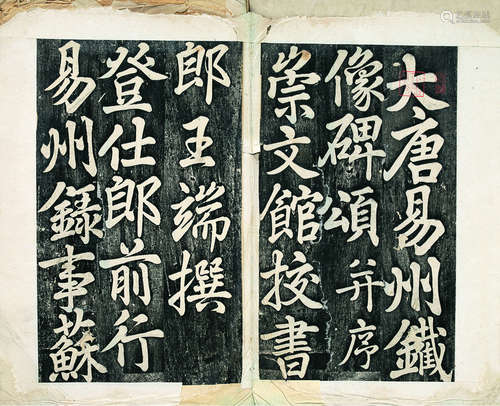 大唐易州鐵
像碑頌并序
崇文館挍書
郎王端撰
登仕郎前行
易州録事蘇